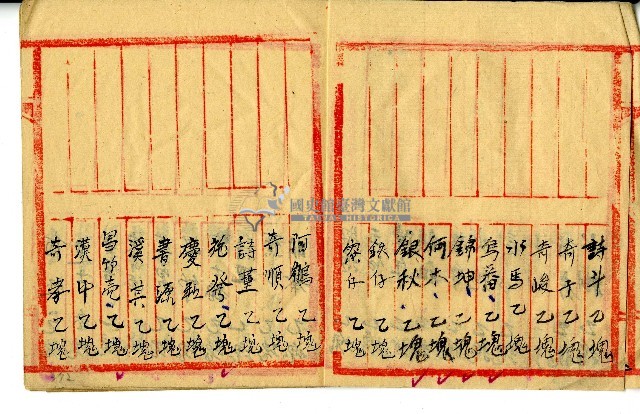 詩斗乙塊
奇子乙塊
奇峻乙塊
水馬乙塊
烏番乙塊
錦坤乙塊
何木乙塊
銀秋乙塊
鉄仔乙塊
寮仔乙塊
阿鶴乙塊
奇順乙塊
詩董乙塊
乙塊
慶乙塊
書乙塊
溪其乙塊
昌竹売乙塊
漢中乙塊
奇孝乙塊
國史館臺灣文獻館
TAIWAN HISTORICA